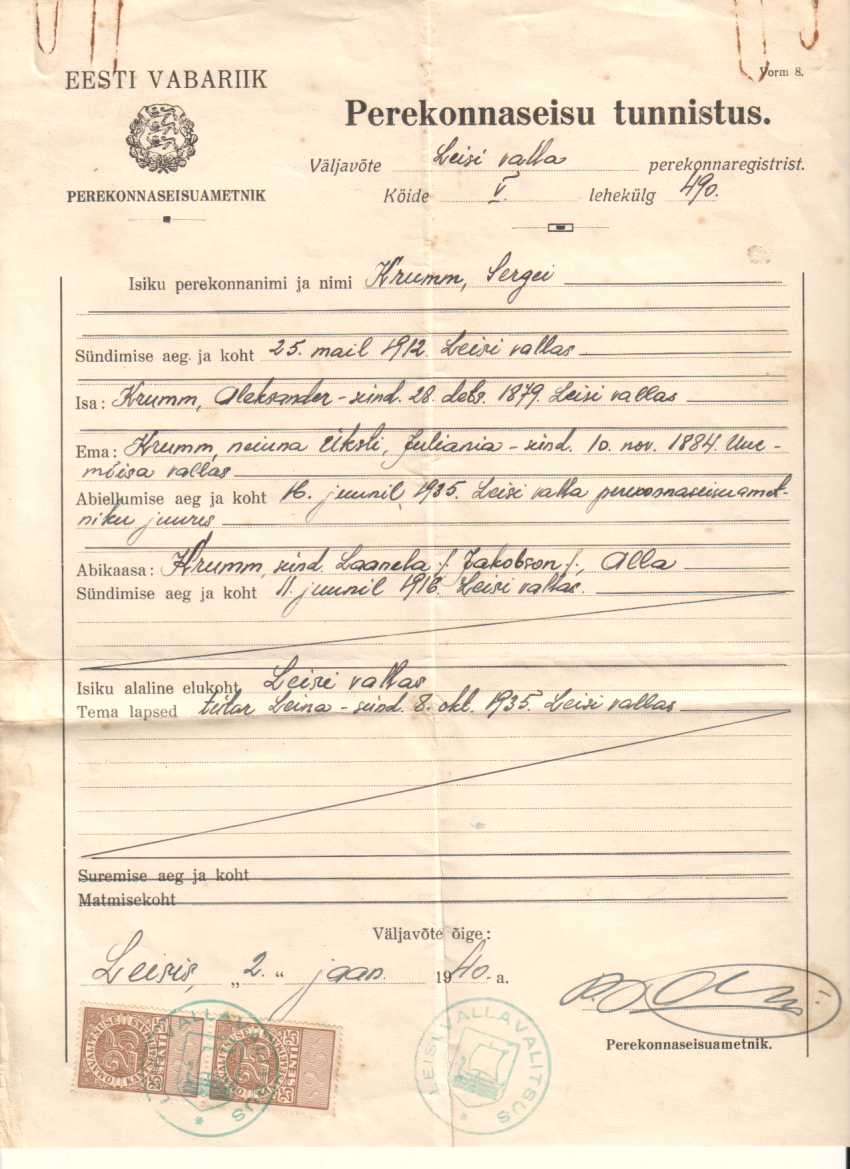 EESTI VABARIIK
PEREKONNASEISUAMETNIK
Vorm 8.
Perekonnaseisu tunnistus.
Väljavõte Leisi valla perekonnaregistrist.
Köide V. lehekülg 490.
Isiku perekonnanimi ja nimi Krumm, Sergei
Sündimise aeg ja koht 25. mail 1912. Leisi vallas
Isa: Krumm, Aleksander - sünd. 28. dets. 1879. Leisi vallas
Ema: Krumm, neiuna Üksti, Juliania - sünd. 10. nov. 1884. Uue-
mõisa vallas
Abiellumise aeg ja koht 16. juunil, 1935. Leisi valla perekonnaseisuamet-
niku juures
Abikaasa: Krumm, sünd. Laanela /Jakobson/, Alla
Sündimise aeg ja koht 11. juunil 1916. Leisi vallas.
Isiku alaline elukoht Leisi vallas
Tema lapsed tütar Leina - sünd. 8. okt. 1935. Leisi vallas
Suremise aeg ja koht
Matmisekoht
Väljavõte õige:
Leisis, „2.“ jaan. 1940. a.
Perekonnaseisuametnik.
25 SENTI
25 SENTI
LEISI VALLAVALITSUS